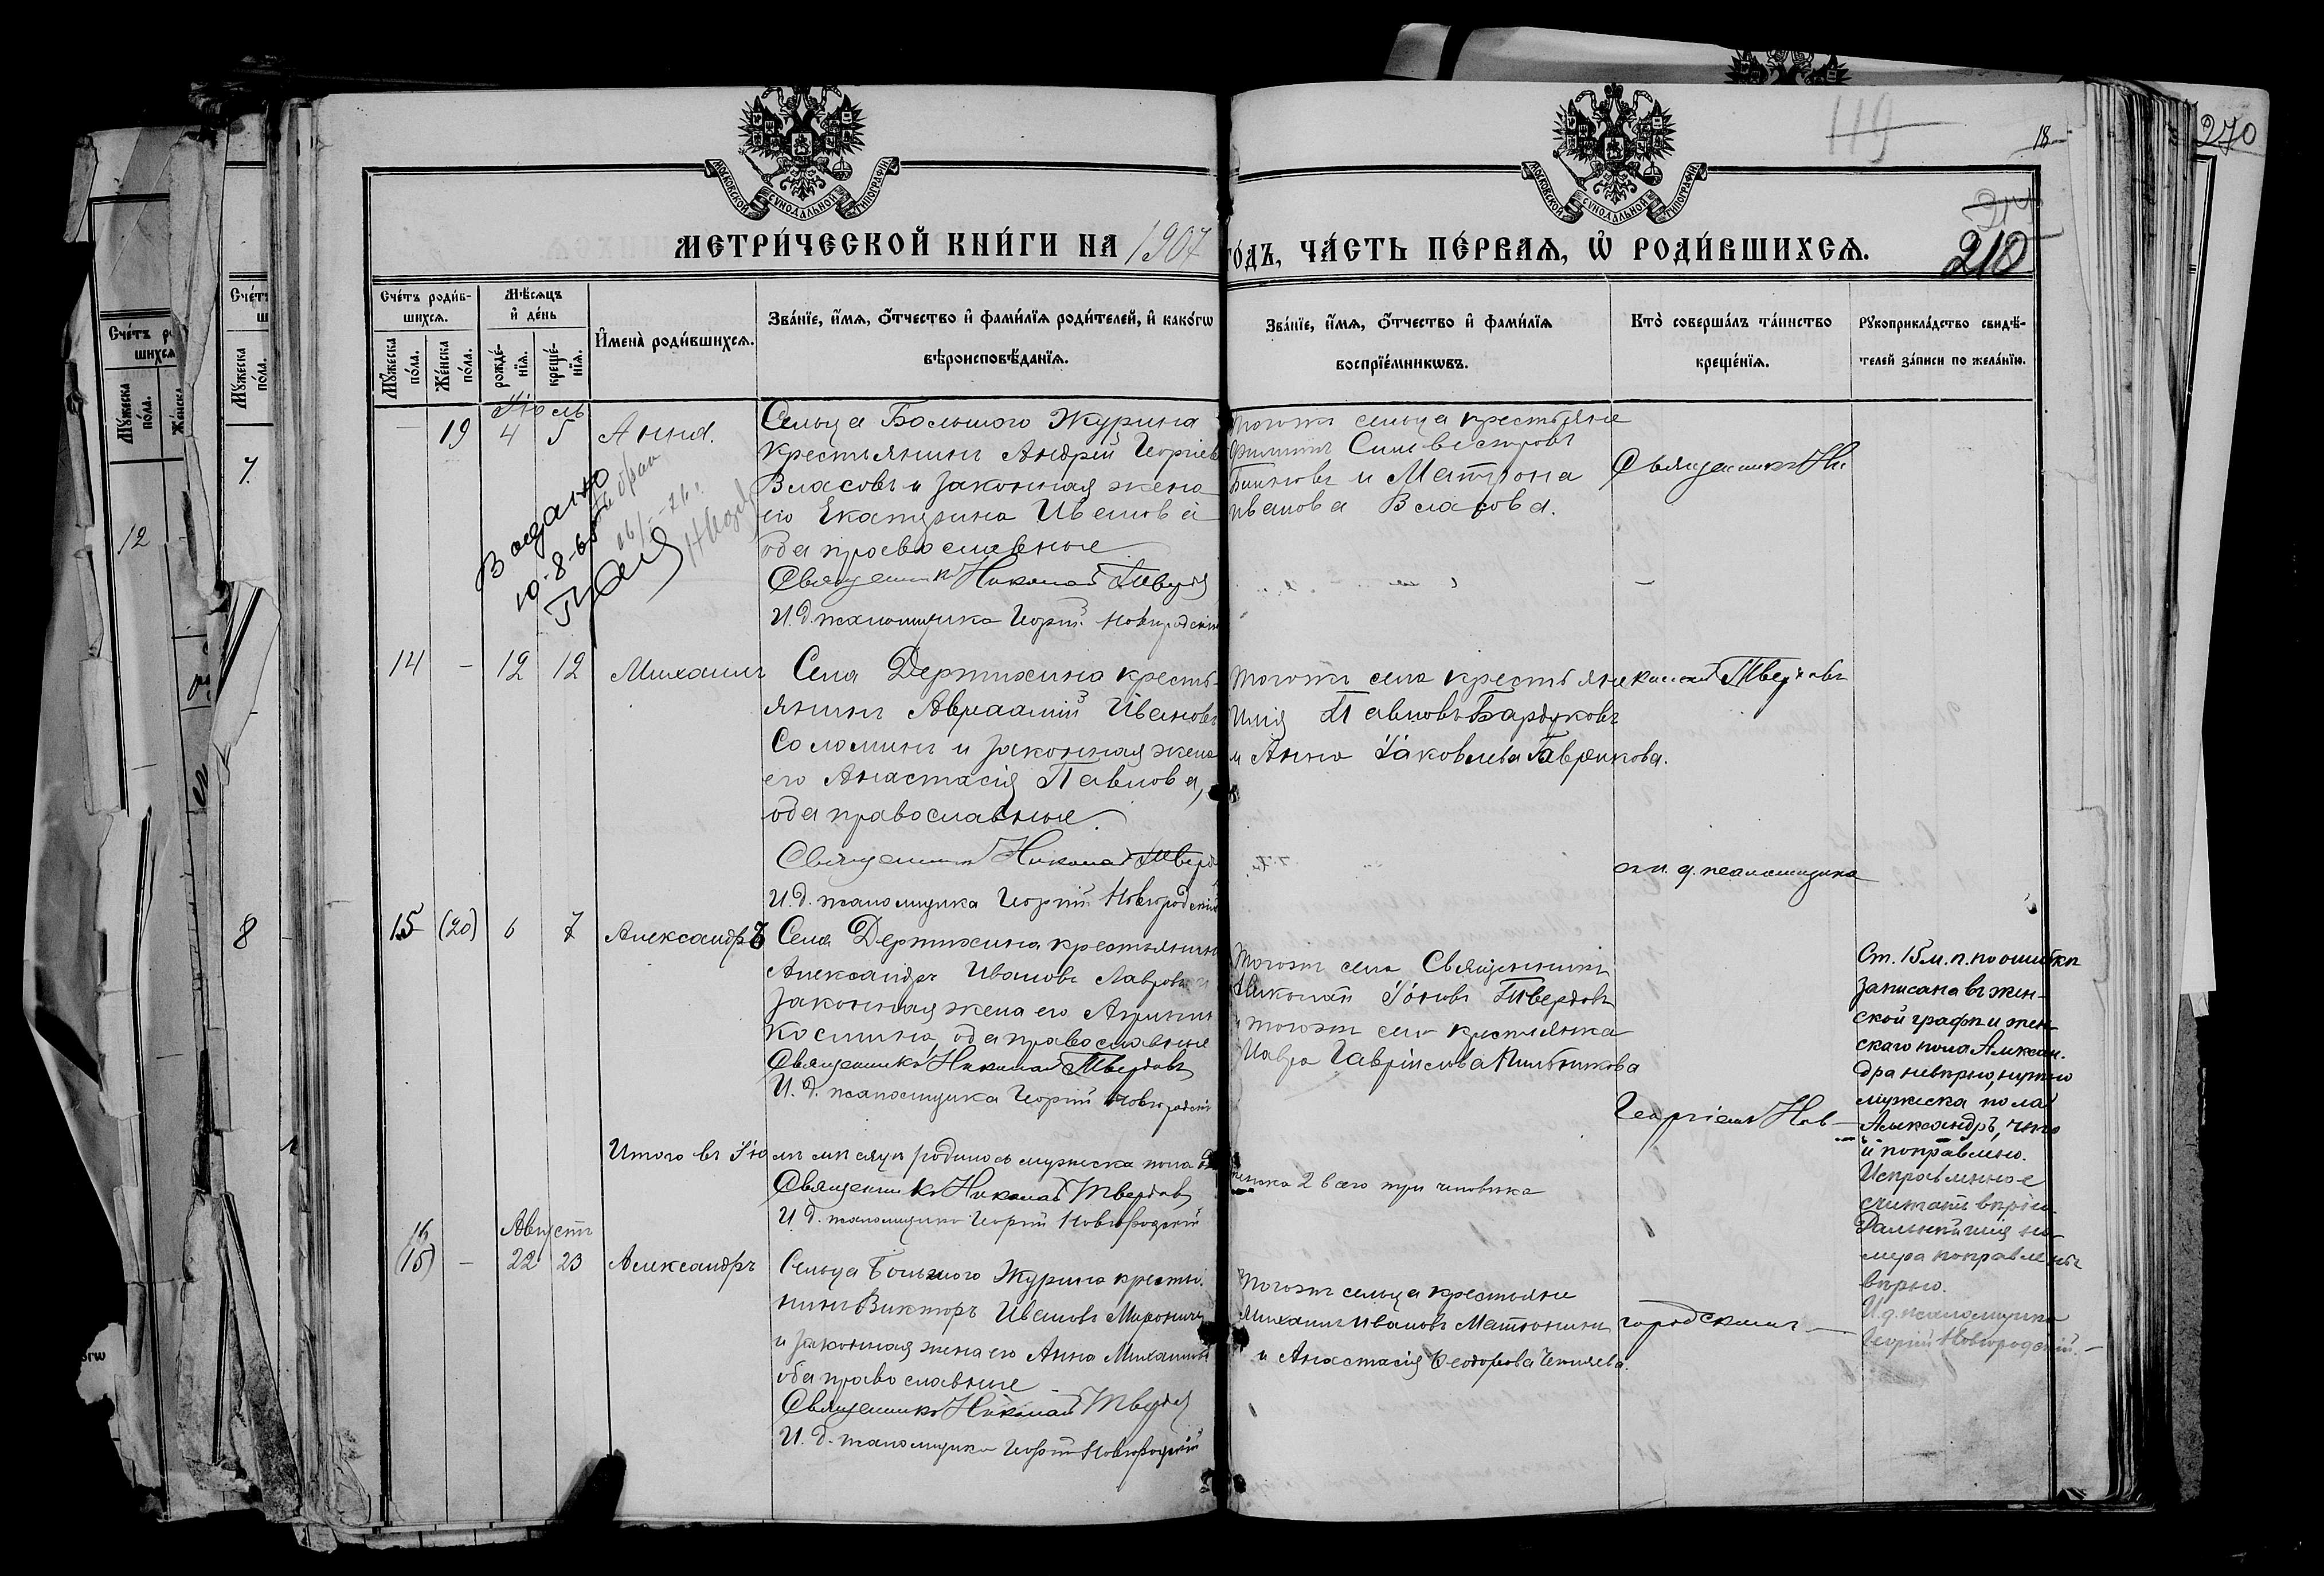 119
18
270
МОСКОВСКОЙ СѴНОДАЛЬНОЙ ТИПОГРАФІИ
МОСКОВСКОЙ СѴНОДАЛЬНОЙ ТИПОГРАФІИ
МЕТРИ́ЧЕСКОЙ КНИ́ГИ НА 1907
ГО́ДЪ, ЧА́СТЬ ПЕ́РВАЯ, Ѡ РОДИ́ВШИХСЯ.
210
Сче́тъ роди́в-
шихся.
Мѣ́сяцъ
и де́нь
Му́жеска
по́ла.
Же́нска
по́ла.
рожде́-
нія.
креще́-
нія.
Имена̀ роди́вшихся.
Зва́ніе, и́мя, о́тчество и фами́лія роди́телей, и како́гѡ
вѣроисповѣ́данія.
Зва́ніе, и́мя, о́тчество и фами́лія
воспріе́мникѡвъ.
Кто̀ соверша́лъ та́инство
креще́нія.
Рукоприкла́дство свидѣ́-
телей за́писи по жела́нію.
Іюль
19 4 5 Анна.
Сельца Большого Журина
крестьянинъ Андрей Георгіев
Власовъ и законная жена
его Екатерина Иванова
оба православные
Священникъ Николай Твердов
И. д. псаломщика Георгій Новгородскій
Тогоже сельца крестьяне
Филиппъ Сильвестровъ
и Матрона
Иванова Власова.
Священникъ Ни
Выдано
10-8-65
14 – 12 12 Михаилъ
Села Дертихина кресть-
янинъ Авраамій Ивановъ
Соломинъ и законная жена
его Анастасія Павлова,
оба православные.
Священникъ Николай Твердо
И. д. псаломщика Георгій Новгородскій
Тогоже села крестьяне
Илія Павловъ Бардуковъ
и Анна Іаковлева Гаврикова.
колай Твердовъ
и и. д. псаломщика
15 (20) 6 7 Александръ
Села Дертихина крестьянинъ
Александръ Ивановъ Лавровъ и
законная жена его
Космина, оба православные
Священникъ Николай Твердовъ
И. д. псаломщика Георгій Новгородскій
Тогоже села Священникъ
Николай Іоновъ Твердовъ
и тогоже села крестьянка
Мавра Гавріилова
Георгіемъ Нов–
Ст. 15 м. п. по ошибкѣ
записана въ жен-
ской графѣ и жен-
скаго пола Алексан-
дра невѣрно, нужно
мужеска пола
Александръ, что
и поправлено.
Исправленное
считать вѣрно.
Дальнѣйшія но-
мера поправлены
вѣрно.
И. д. псаломщика
Георгій Новгородскій. –
Итого въ Іюлѣ мѣсяцѣ родилось мужеска пола
женска 2 всего три человѣка
Священникъ Николай Твердовъ
И. д. псаломщика Георгій Новгородскій
Августъ
16
(15) – 22 23 Александръ
Сельца Большого Журина кресть-
нинъ Викторъ Ивановъ Миронычевъ
и законная жена его Анна Михаилова
оба православные
Священникъ Николай Твердов
И. д. псаломщика Георгій Новгородскій
Тогоже сельца крестьяне
Михаилъ Ивановъ Матюнинъ
и Анастасія Ѳеодорова
городскимъ –
7.
8
12